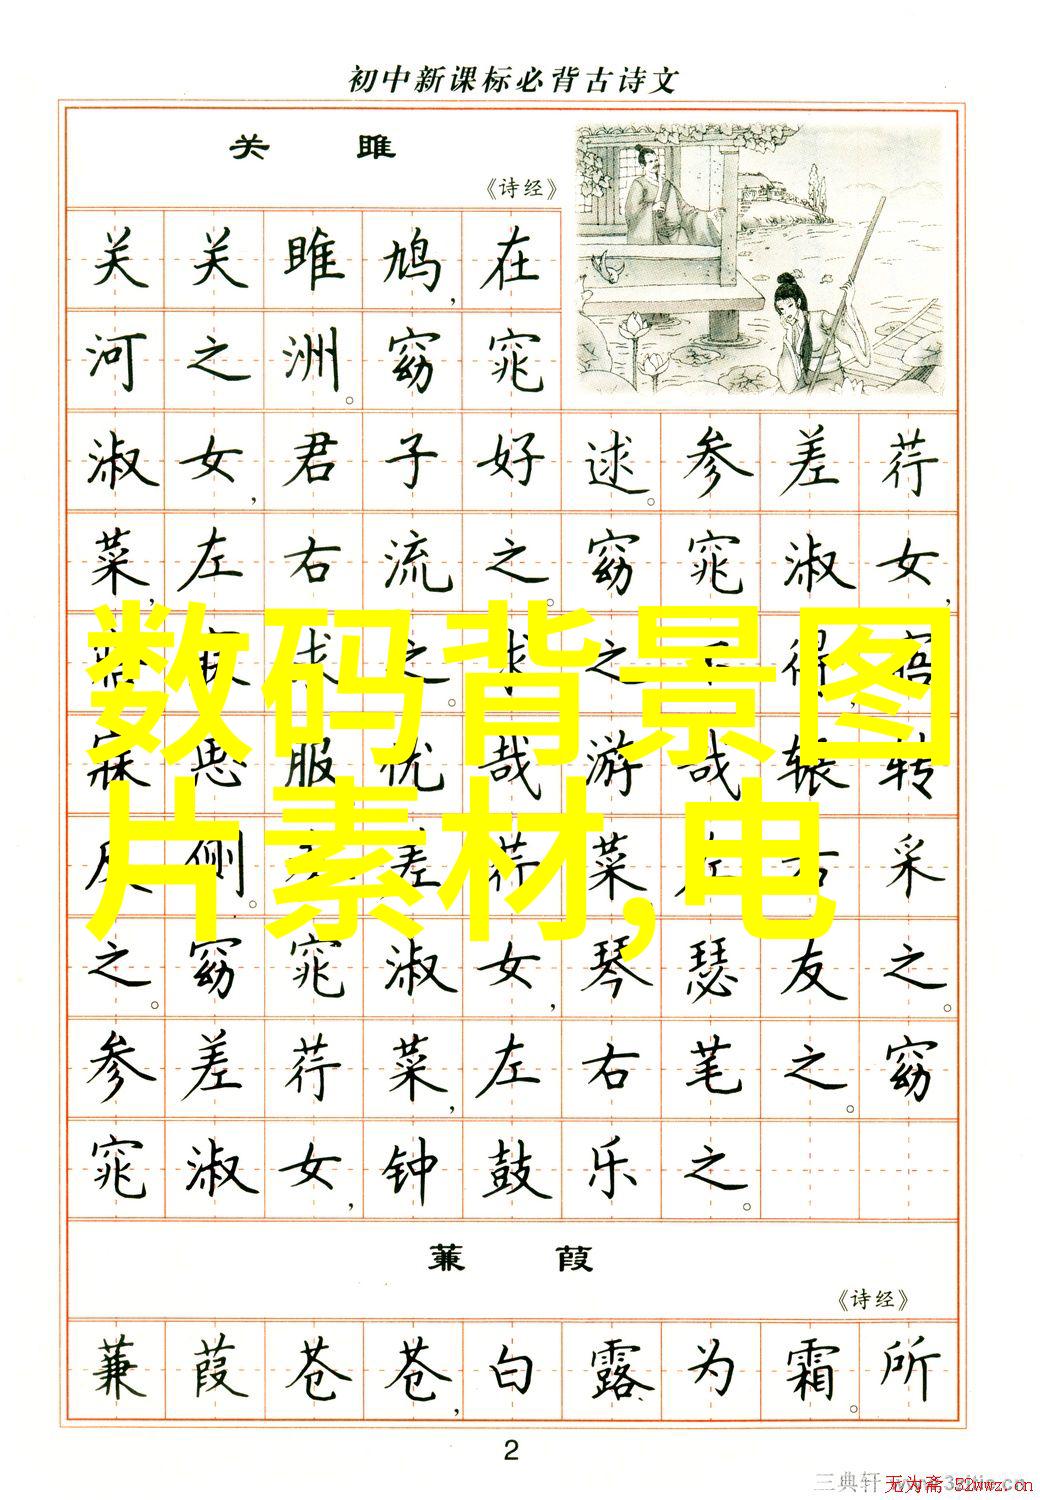 初中新课标必背古诗文
关 雎
《诗经》
关关雎鸠,在
河之洲。窈窕
淑女,君子好逑。参差荇
菜,左右流之。窈窕淑女,
寤寐求之。求之不得,寤
数码背景图
寐思服优哉游哉辗转
片素材,电
反侧。参差荇菜,左右采
之。窈窕淑女,琴瑟友之。
参差荇菜,左右芼之。窈
窕淑女,钟鼓乐之。
蒹 葭
《诗经》
蒹葭苍苍,白露为霜。所
2
三典轩
无为斋 52wwz.cn